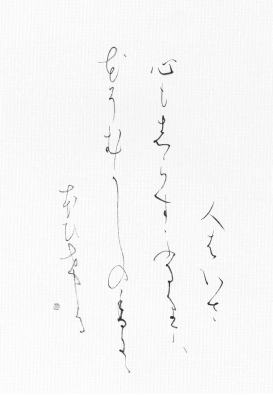 人はいさ
心もしらすふるさとは
花そむかしの香に
にほひける